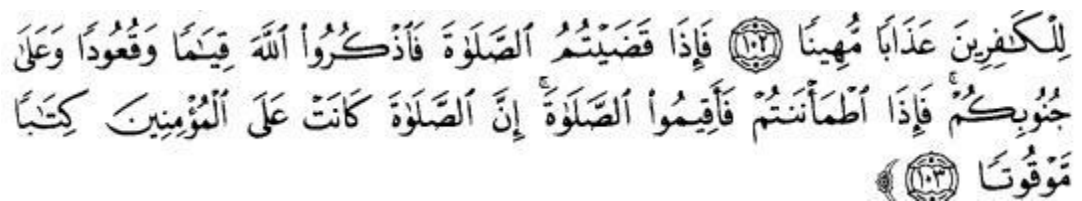 لِلْكَـٰفِرِينَ عَذَابًا مُّهِينًا ﴿١٠٢﴾ فَإِذَا قَضَيْتُمُ ٱلصَّلَوٰةَ فَٱذْكُرُوا۟ ٱللَّهَ قِيَـٰمًا وَقُعُودًا وَعَلَىٰ
جُنُوبِكُمْ ۚ فَإِذَا ٱطْمَأْنَنتُمْ فَأَقِيمُوا۟ ٱلصَّلَوٰةَ ۚ إِنَّ ٱلصَّلَوٰةَ كَانَتْ عَلَى ٱلْمُؤْمِنِينَ كِتَـٰبًا
مَّوْقُوتًا ﴿١٠٣﴾ ﴾